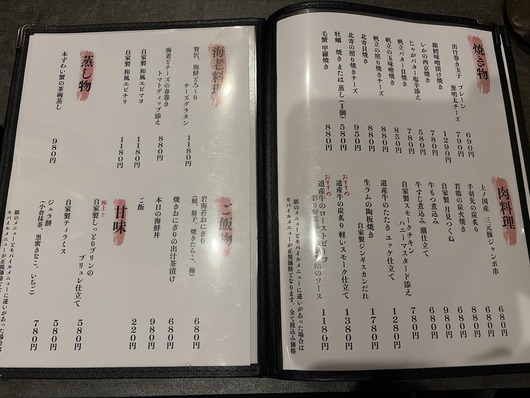 焼き物
出汁巻き玉子 プレーン 690円
葱明太チーズ 790円
銀鱈味噌漬け焼き 1290円
いかの西京焼き 780円
じゃがバター塩辛添え 780円
帆立バター貝焼き
帆立の玉味噌焼き
帆立の照り焼きチーズ
北寄貝焼き
北寄の照り焼きチーズ
牡蠣 焼き または 蒸し(1個) 580円
毛蟹 甲羅焼き 880円
肉料理
上ノ国産 三元豚ジャンボ串
手羽先の炭火焼き
若鶏の炭火焼き
自家製 月見つくね
牛もつ煮込み
牛すじ煮込み 潮仕立て
自家製スモークチキン
ハニーマスタード添え 780円
道産牛のたたき ユッケ仕立て 1280円
生ラムの陶板焼き
自家製ジンギスカンだれ 1780円
おすすめ
道産牛の炭炙り 軽いスモーク仕立て 1380円
おすすめ
道産牛のローストビーフ
1180円
紙のメニューとモバイルメニューに違いがあった場合は
モバイルメニューが正規価格となります。全て税込み価格
海老料理
贅沢、海鮮とろ～り
チーズグラタン 1180円
海老とチーズの春巻き
トマトディップ添え 880円
自家製 和風エビマヨ 1180円
自家製 和風エビチリ 1180円
蒸し物
本ずわい蟹の茶碗蒸し 980円
ご飯物
岩海苔おにぎり
(鮭、勝子、焼きたらこ、梅) 680円
焼きおにぎりの出汁茶漬け 680円
本日の海鮮丼 980円
ご飯 220円
甘味
極上!!
自家製しっとりプリンの
ブリュレ仕立て 580円
自家製ティラミス 580円
ジェラ餅
(小倉抹茶、黒蜜きなこ、いちご) 780円
紙のメニューとモバイルメニューに違いがあった場合は
モバイルメニューが正規価格となります。全て税込み